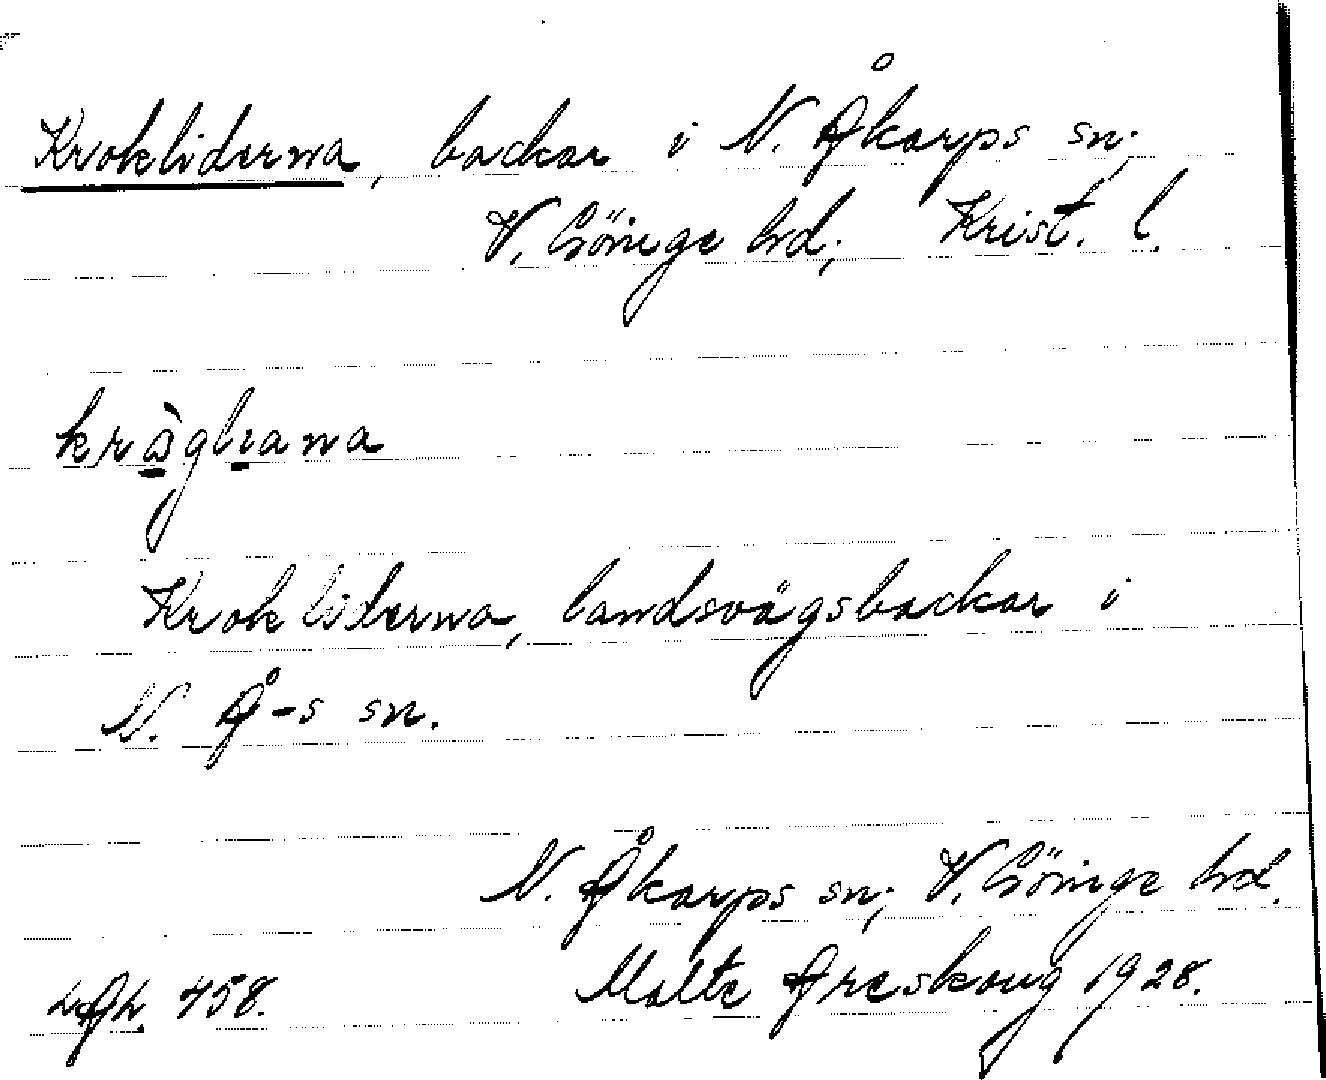 Krokliderna, backar i N. Åkarps sn;
V. Göinge hrd; Krist. l.
kràgliana
Krokliderna, landsvägsbackar i
N. Å-s sn.
N. Åkarps sn; V. Göinge hrd.
Malte Areskoug 1928.
458.